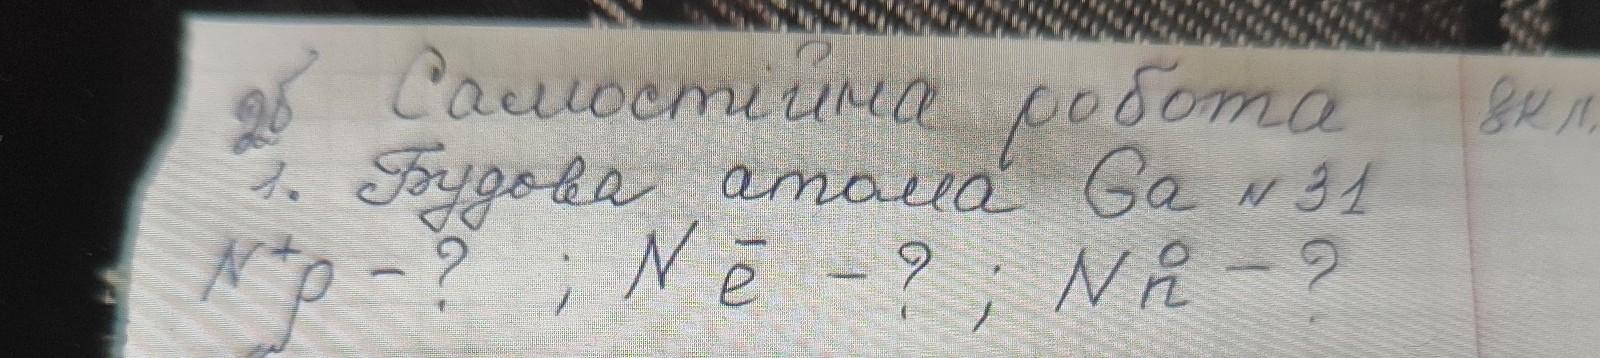 2б Самостійна робота 8кл.
1. Будова атома Ga N31
N⁺p - ? ; N ē - ? ; N n⁰ - ?